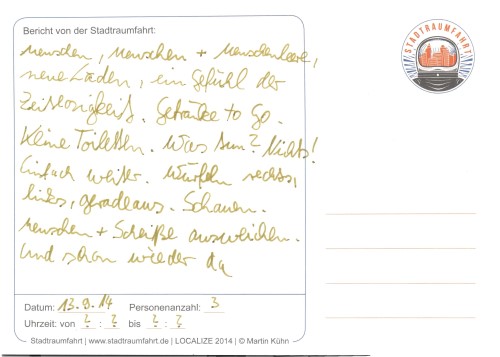 Bericht von der Stadtraumfahrt:
Menschen, Menschen + Menschenleere,
neue Läden, ein Gefühl der
Zeitlosigkeit. Getränke to Go.
Keine Toiletten. Was tun? Nichts!
Einfach weiter. Würfeln rechts,
links, geradeaus. Schauen.
Menschen + Scheiße ausweichen.
Und schon wieder da
Datum: 13.9.14 Personenanzahl: 3
Uhrzeit: von ? : ? bis ? : ?
Stadtraumfahrt | www.stadtraumfahrt.de | LOCALIZE 2014 | © Martin Kühn
STADTRAUMFAHRT